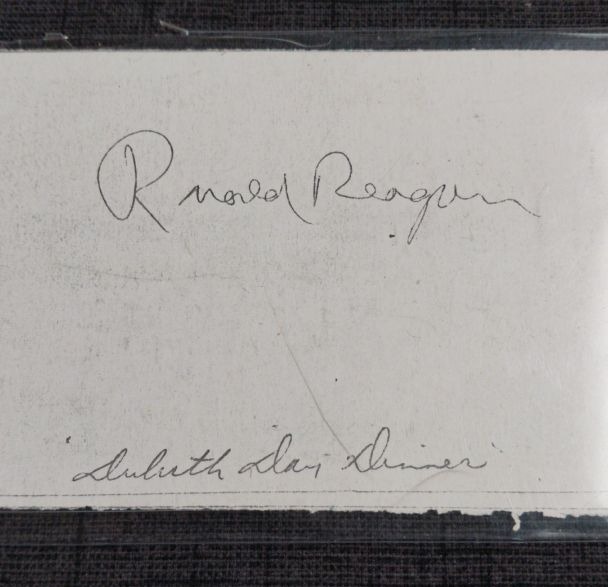 Ronald Reagan
'Duluth Day Dinner'